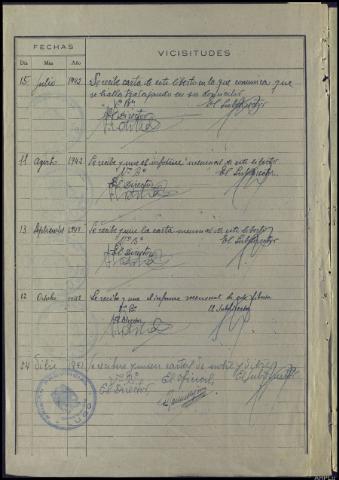 FECHAS
VICISITUDES
Día Mes Año
15 Julio 1942 Se recibe carta de este liberto en la que comunica que
se halla trabajando en su domicilio
Vº Bº El Subdirector
El Director
11 Agosto 1942 Se recibe y une el informe mensual de este liberto
Vº Bº El Subdirector
El Director
13 Septiembre 1942 Se recibe y une la carta mensual de este liberto
Vº Bº El Subdirector
El Director
12 Octubre 1942 Se recibe y une el informe mensual de este liberto
Vº Bº El Subdirector
El Director
24 Se reciben y unen cartas de
Vº Bº El Oficial El Subdirector
El Director